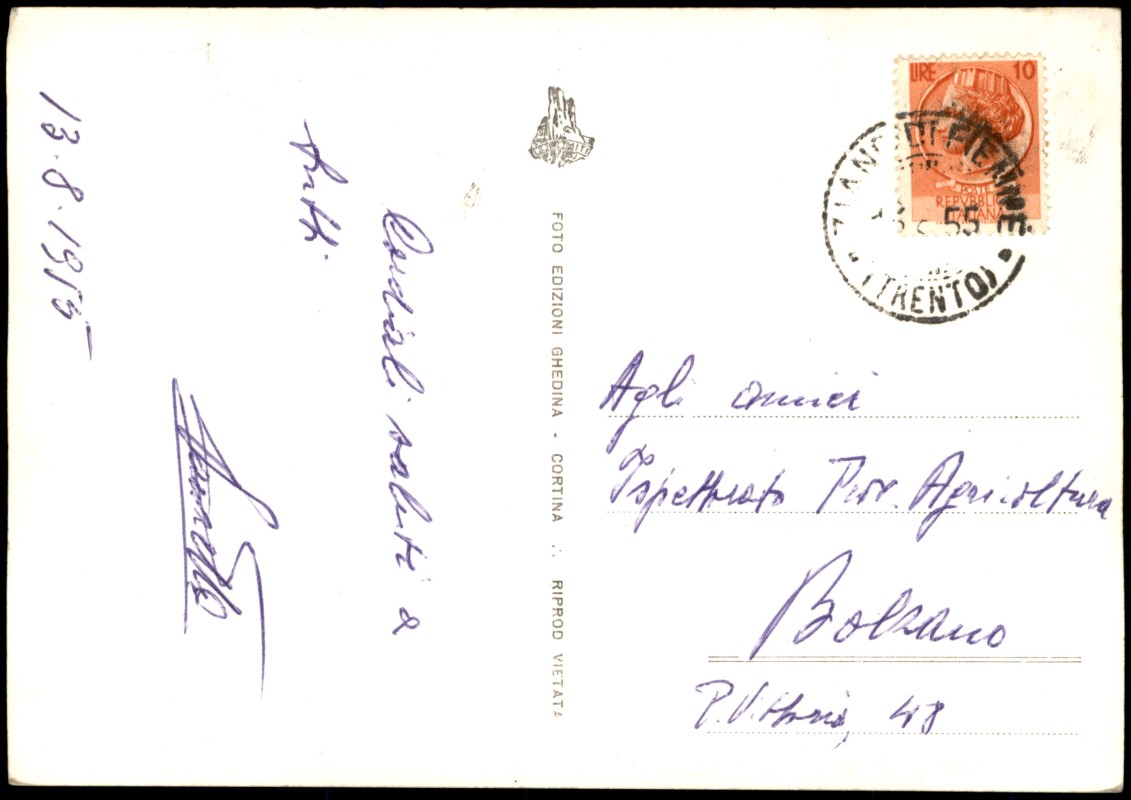 13.8.1955
Cordiali saluti a
tutti.
FOTO EDIZIONI GHEDINA - CORTINA ∴ RIPROD VIETATA
LIRE 10
POSTE
REPVBBLICA
ITALIANA
ZIANO DI FIEMME
55
(TRENTO)
Agli amici
Ispettorato Prov. Agricoltura
Bolzano
P. Vittoria, 48